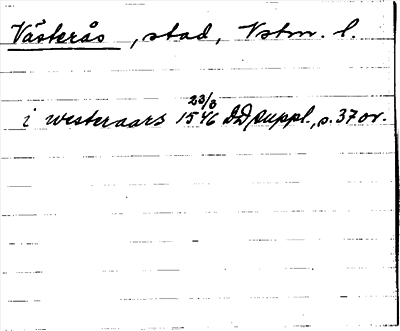 Västerås, stad, Vstm. l.
i westeraars 23/8 1546 DD suppl., s. 37 or.